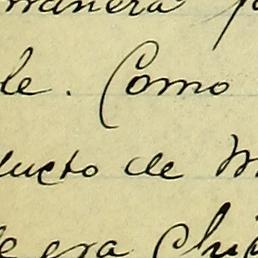 manera
le. Como
ducto de
e era Chi